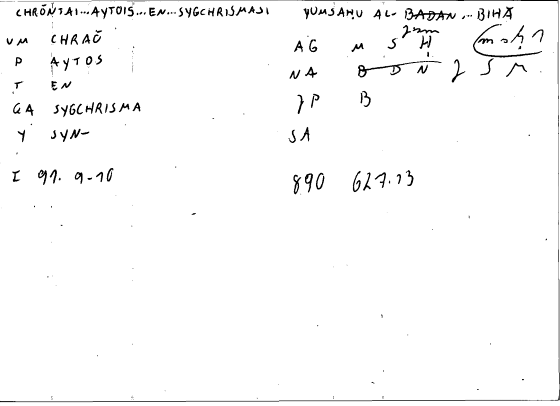 CHRŌNTAI...AYTOIS...EN...SYGCHRISMASI YUMSAḤU AL-BADAN...BIHĀ
VM CHRAŌ AG M S Ḥ
P AYTOS NA B D N J S M
T EN JP B
GA SYGCHRISMA SA
Y SYN-
I 91. 9-10 890 627.13